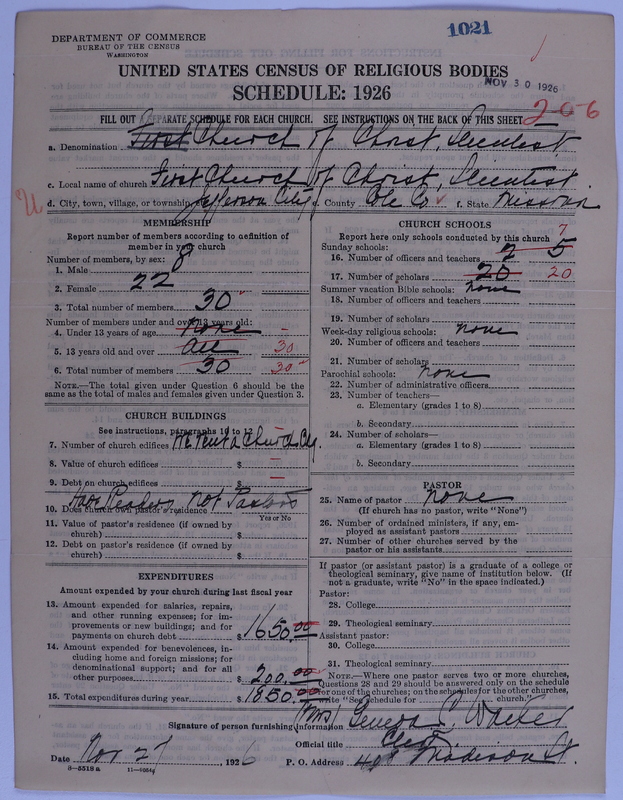 1021
DEPARTMENT OF COMMERCE
BUREAU OF THE CENSUS
WASHINGTON
UNITED STATES CENSUS OF RELIGIOUS BODIES
NOV 30 1926
SCHEDULE: 1926
206
FILL OUT SEPARATE SCHEDULE FOR EACH CHURCH. SEE INSTRUCTIONS ON THE BACK OF THIS SHEET
a. Denomination First Church of Christ, Scientist
c. Local name of church First Church of Christ, Scientist.
d. City, town, village, or township Jefferson City e. County Cole Co f. State Missouri
MEMBERSHIP
Report number of members according to definition of member in your church
Number of members, by sex:
1. Male 8
2. Female 22
3. Total number of members 30
Number of members under and over 13 years old:
4. Under 13 years of age None -
5. 13 years old and over all 30
6. Total number of members 30 30
NOTE.—The total given under Question 6 should be the same as the total of males and females given under Question 3.
CHURCH BUILDINGS
See instructions, paragraphs 10 to 12
7. Number of church edifices We Rent a Church
8. Value of church edifices $ -
9. Debt on church edifices $ -
Have Readers not Pastors
10. Does church own pastor's residence
Yes or No
11. Value of pastor's residence (if owned by church) $
12. Debt on pastor's residence (if owned by church) $
EXPENDITURES
Amount expended by your church during last fiscal year
13. Amount expended for salaries, repairs, and other running expenses; for improvements or new buildings; and for payments on church debt $ 1650.00
14. Amount expended for benevolences, including home and foreign missions; for denominational support; and for all other purposes $ 200.00
15. Total expenditures during year $ 1850.00
CHURCH SCHOOLS
Report here only schools conducted by this church
Sunday schools: 7
16. Number of officers and teachers 2 5
17. Number of scholars 20 20
Summer vacation Bible schools: none
18. Number of officers and teachers
19. Number of scholars
Week-day religious schools: none
20. Number of officers and teachers
21. Number of scholars
Parochial schools: none
22. Number of administrative officers
23. Number of teachers—
a. Elementary (grades 1 to 8)
b. Secondary
24. Number of scholars—
a. Elementary (grades 1 to 8)
b. Secondary
PASTOR
25. Name of pastor none
(If church has no pastor, write "None")
26. Number of ordained ministers, if any, employed as assistant pastors
27. Number of other churches served by the pastor or his assistants
If pastor (or assistant pastor) is a graduate of a college or theological seminary, give name of institution below. (If not a graduate, write "No" in the space indicated.)
Pastor:
28. College
29. Theological seminary
Assistant pastor:
30. College
31. Theological seminary
NOTE.—Where one pastor serves two or more churches, Questions 28 and 29 should be answered only on the schedule for one of the churches; on the schedules for the other churches, write "See schedule for church."
Signature of person furnishing information (Mrs) C. Walker
Official title Clerk
Date Nov 27, 1926 P. O. Address Madison St.
8-5518 a